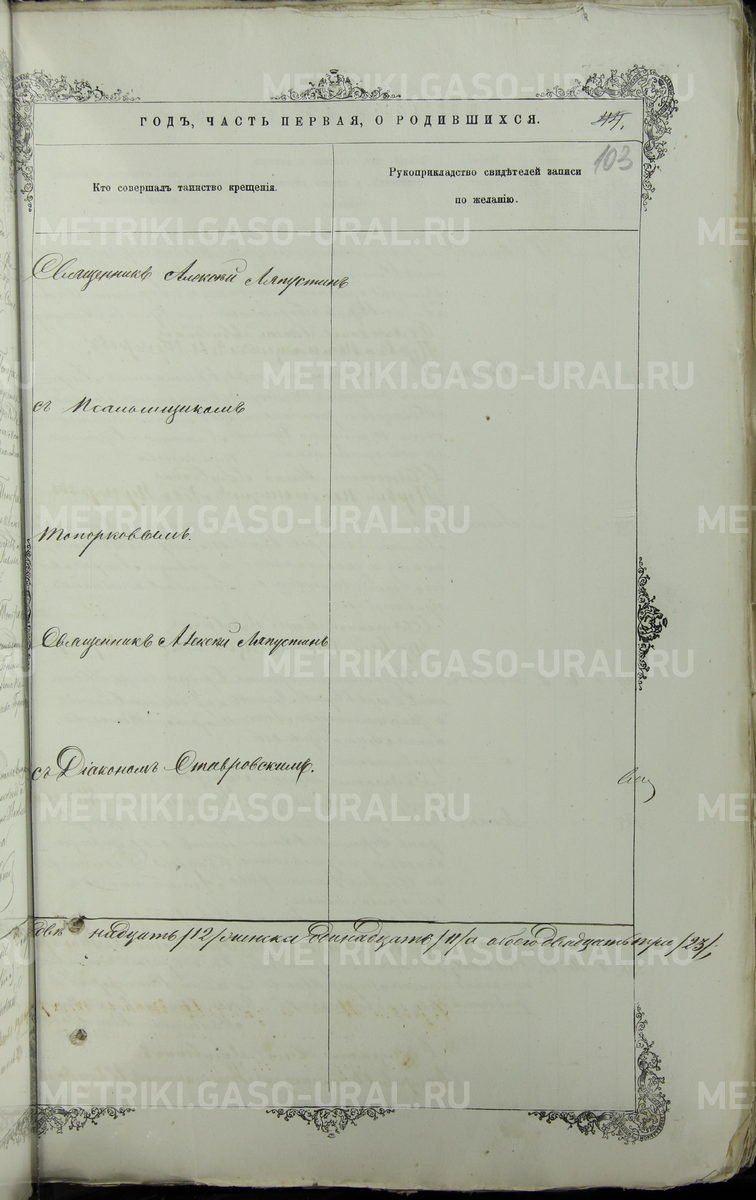 METRIKI.GASO-URAL.RU
ГОДЪ, ЧАСТЬ ПЕРВАЯ, О РОДИВШИХСЯ.
103
Кто совершалъ таинство крещенія.
Рукоприкладство свидѣтелей записи
по желанію.
METRIKI.GASO-URAL.RU
Священникъ Алексѣй Ляпустинъ
METRIKI.GASO-URAL.RU
съ Псаломщикомъ
METRIKI.GASO-URAL.RU
Топорковымъ.
Священникъ Алексѣй Ляпустинъ
METRIKI.GASO-URAL.RU
съ Діакономъ Ставровскимъ.
METRIKI.GASO-URAL.RU
надцать /12/ женска одинадцать /11/ а обоего двадцать три /23/.
METRIKI.GASO-URAL.RU
METRIKI.GASO-URAL.RU